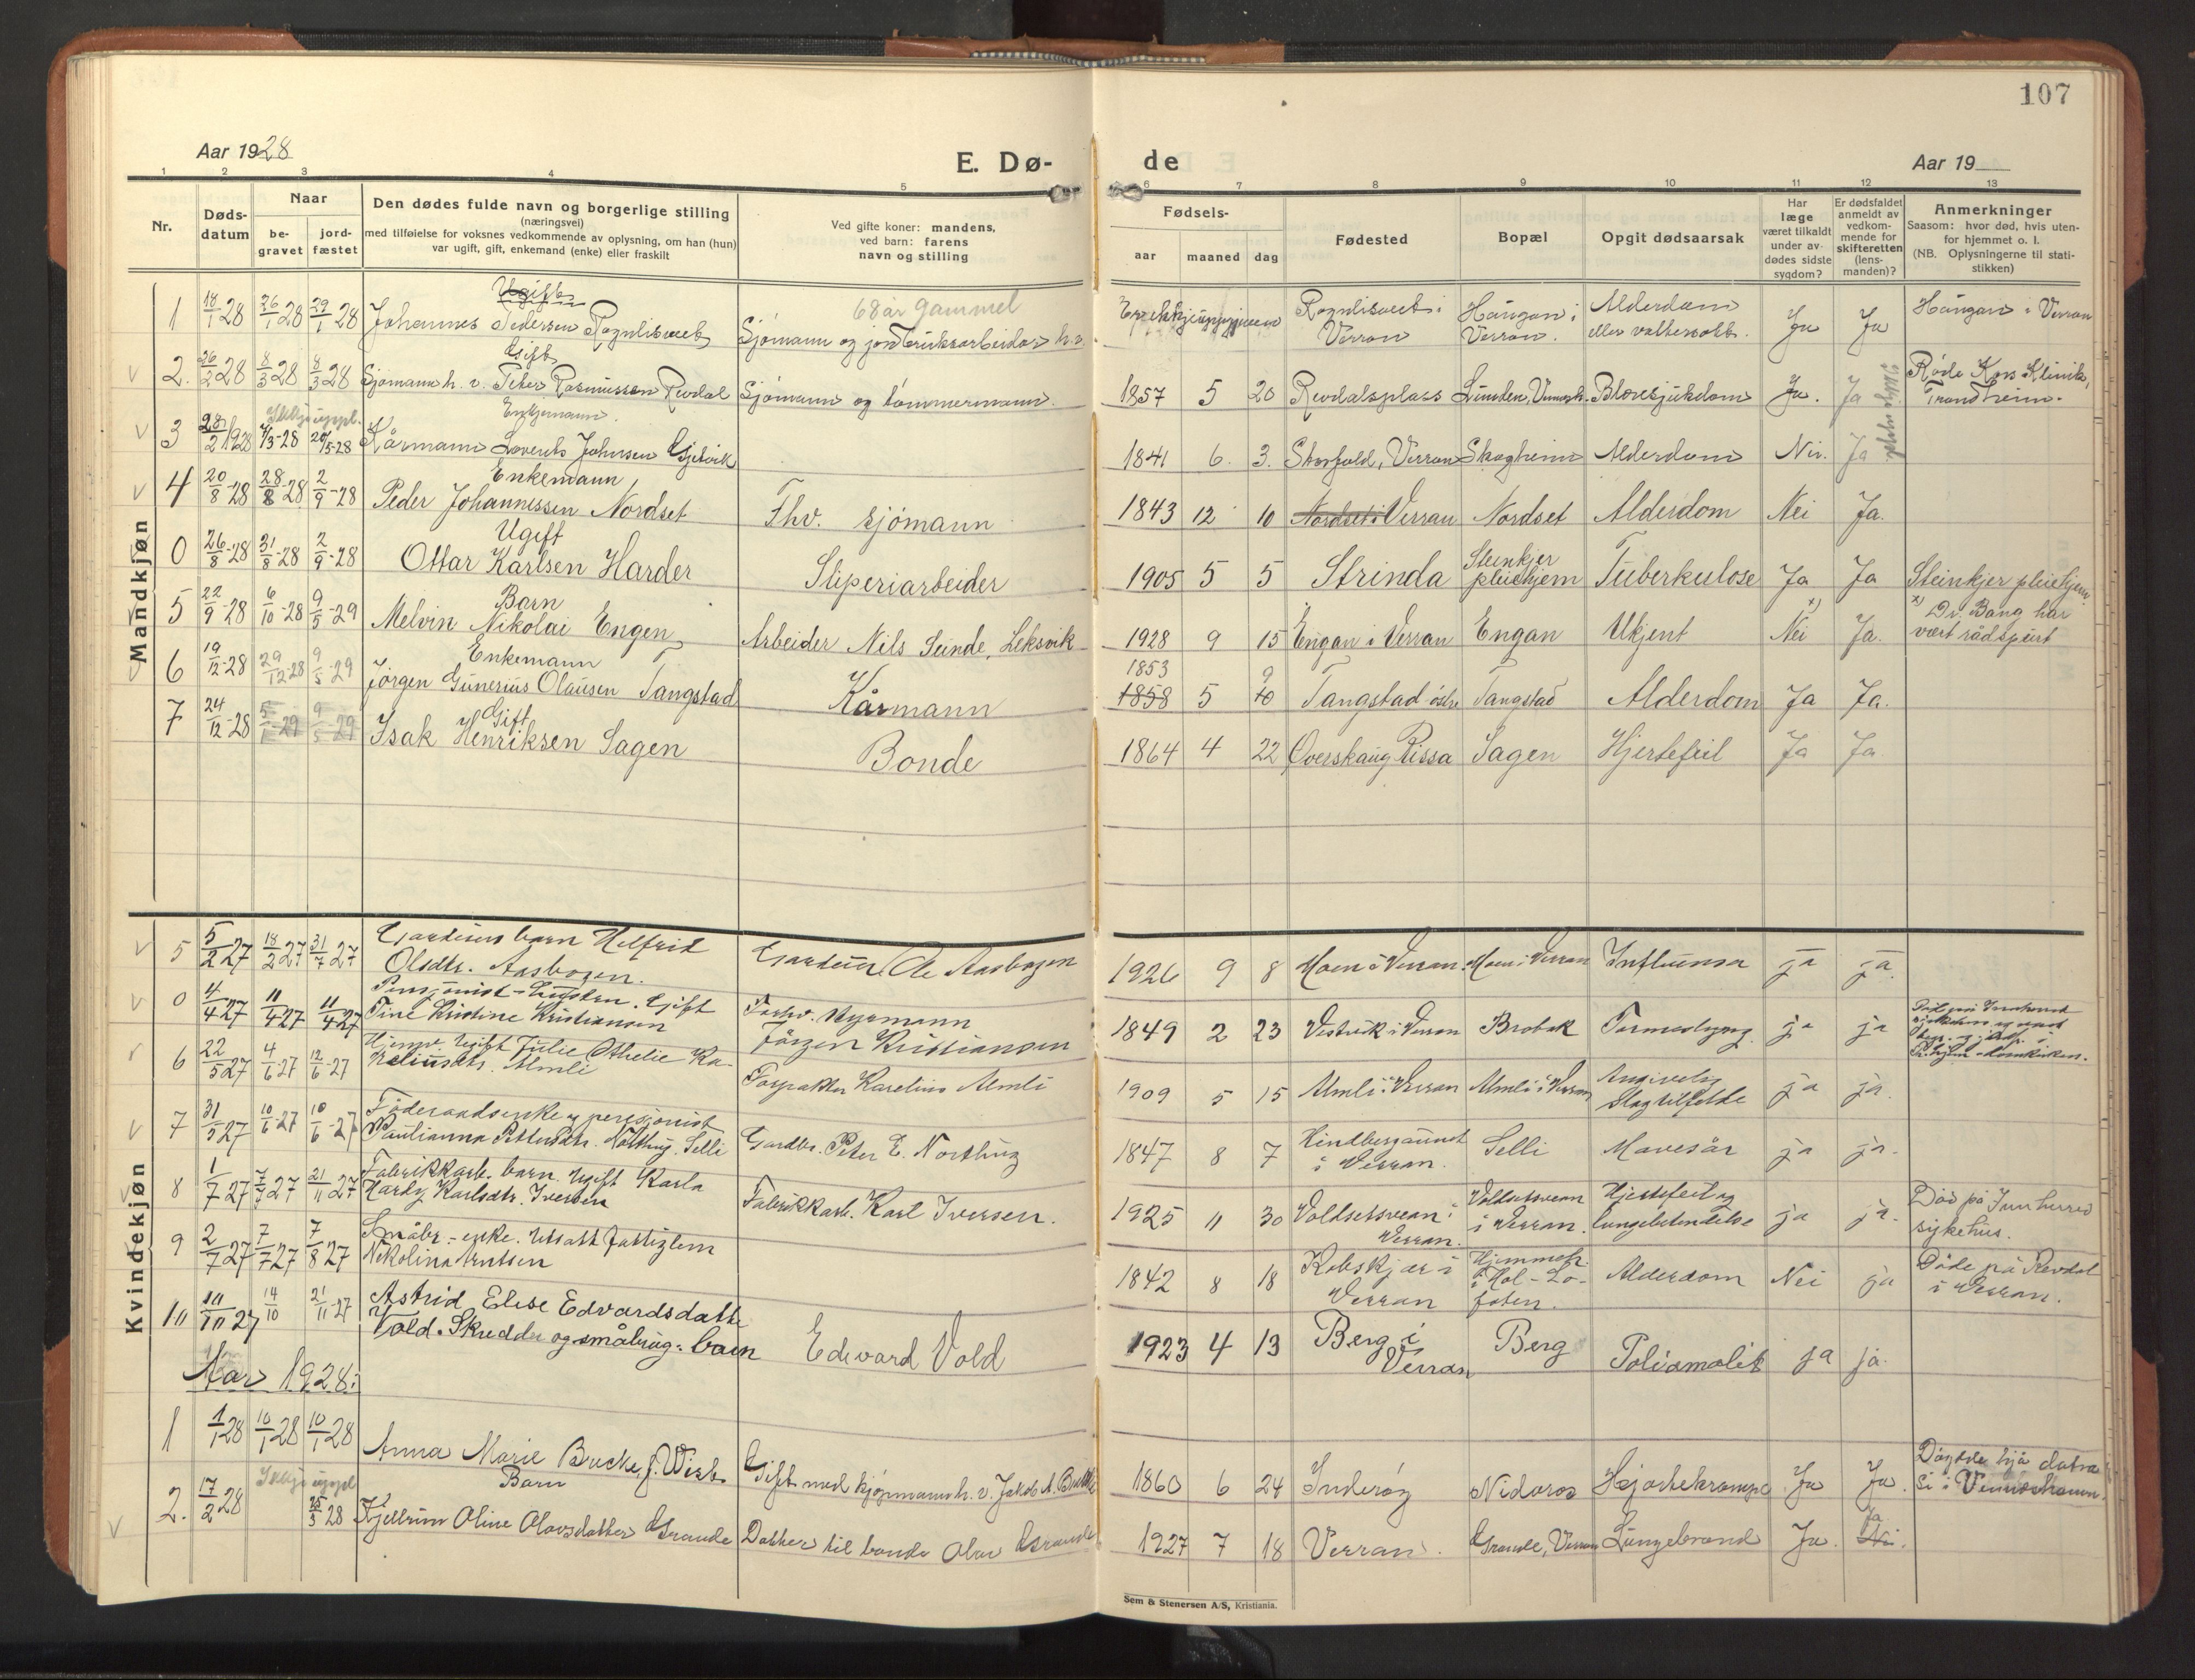 107
Aar 1928
E. Dø-
de
Aar 19
1 2 3 4 5 6 7 8 9 10 11 12 13
Nr.
Døds-
datum
Naar
be-
gravet
jord-
fæstet
Den dødes fulde navn og borgerlige stilling
(næringsvei)
med tilføielse for voksnes vedkommende av oplysning, om han (hun)
var ugift, gift, enkemand (enke) eller fraskilt
Ved gifte koner: mandens,
ved barn: farens
navn og stilling
Fødsels-
aar maaned dag
Fødested
Bopæl
Opgit dødsaarsak
Har
læge
været tilkaldt
under av-
dødes sidste
sygdom?
Er dødsfaldet
anmeldt av
vedkom-
mende for
skifteretten
(lens-
manden)?
Anmerkninger
Saasom: hvor død, hvis uten-
for hjemmet o. l.
(NB. Oplysningerne til stati-
stikken)
Mandkjøn
Ugift
68 år gammel
1 18/1 28 26/1 28 29/1 28 Johannes Pedersen Sjømann og Verran Verran. Alderdom eller Ja Ja i Verran
Gift
2. 26/2 28 8/3 28 8/3 28 Sjømann h. v. Peter Rasmussen Revdal Sjømann og tømmermann. 1857 5 20 Revdalsplass Ja. Ja Røde Kors Klinik, Trondheim.
Enkjemann.
3 28/2 1928 20/5-28 Kårmann Lorents Johnsen Gjetvik 1841 6. 3. Verran Skogheim Alderdom Nei. Ja
Enkemann
4 20/8-28 28/8-28 2/9-28 Peder Johannessen Nordset Fhv. sjømann 1843 12 10 Nordset i Verran Nordset Alderdom Nei Ja.
Ugift
0 26/8-28 31/8-28 2/9-28 Ottar Karlsen Harder Sliperiarbeider 1905 5 5 Strinda Steinkjer pleiehjem Tuberkulose Ja Ja Steinkjer pleiehjem
Barn
5 22/9-28 6/10-28 9/5-29 Melvin Nikolai Engen Arbeider Nils Sunde, Leksvik 1928 9 15 Engan i Verran Engan Ukjent x) Nei Ja. x) Dr. Bang har vært rådspurt
Enkemann
6 19/12-28 29/12-28 9/5-29 Jørgen Gunerius Olausen Tangstad Kårmann 1858 1853 5 10 9 Tangstad østre Tangstad Alderdom Ja Ja.
Gift
7 24/12-28 5/1-29 9/5-29 Isak Henriksen Sagen Bonde 1864 4 22 Overskaug Rissa Sagen Hjertefeil Ja Ja
Kvindekjøn
5 5/2 27 18/2 27 31/7 27 barn Helfrid Olsdtr. Aasbogen. Ole Aasbogen 1926 9 8 Moen i Verran. Moen i Verran Influensa ja ja.
0 4/4 27 11/4 27 11/4 27 Gift Tine Kristine Kristiansen Jørgen Kristiansen 1849 2 23 Vestvik i Verran Brobak ja ja
6 22/5 27 4/6-27 12/6-27 Ugift Julie Othelie Ka- reliusdtr. Almli Forpakter Karelius Almli 1909 5 15 Almli i Verran Almli i Verran Angivelig Slagtilfelde ja ja.
7 31/5 27 10/6-27 10/6-27 Føderaadsenke og pensjonist Paulianna Pettersdtr. Selli Gardbr. Peter E. Northug 1847 8 7 i Verran. Selli Mavesår ja ja.
8 1/7 27 7/7 27 21/11 27 Fabrikkarb. barn Ugift Karla Hardy Karlsdtr. Iversen Fabrikkarb. Karl Iversen. 1925 11 30 Verran. i Verran. Hjertefeil og lungebetendelse ja ja. Død på Innherred sykehus.
9 2/7 27 7/7 27 7/8 27 Småbr.-enke. Nikolina Arntsen 1842 8 18 Verran Alderdom Nei ja Døde på Revdal i Verran.
10 10/10 27 14/10 21/11-27 Astrid Elise Edvardsdatter Vold. Skredder og småbrug. barn Edvard Vold 1923 4 13 Berg i Verran Berg ja ja.
Aar 1928:
1 1/1 28 10/1 28 10/1 28 Anna Marie f. Gift med kjøpmann h. v. 1860 6 24 Inderøy Nidaros Hjertekrampe Ja Ja.
Barn
2. 17/2 28 Kjellrun Oline Olavsdatter Grande Datter til bonde Olav Grande 1927 7 18 Verran. Grande, Verran Lungebrand Ja. Ja Nei.
Sem & Stenersen A/S, Kristiania.